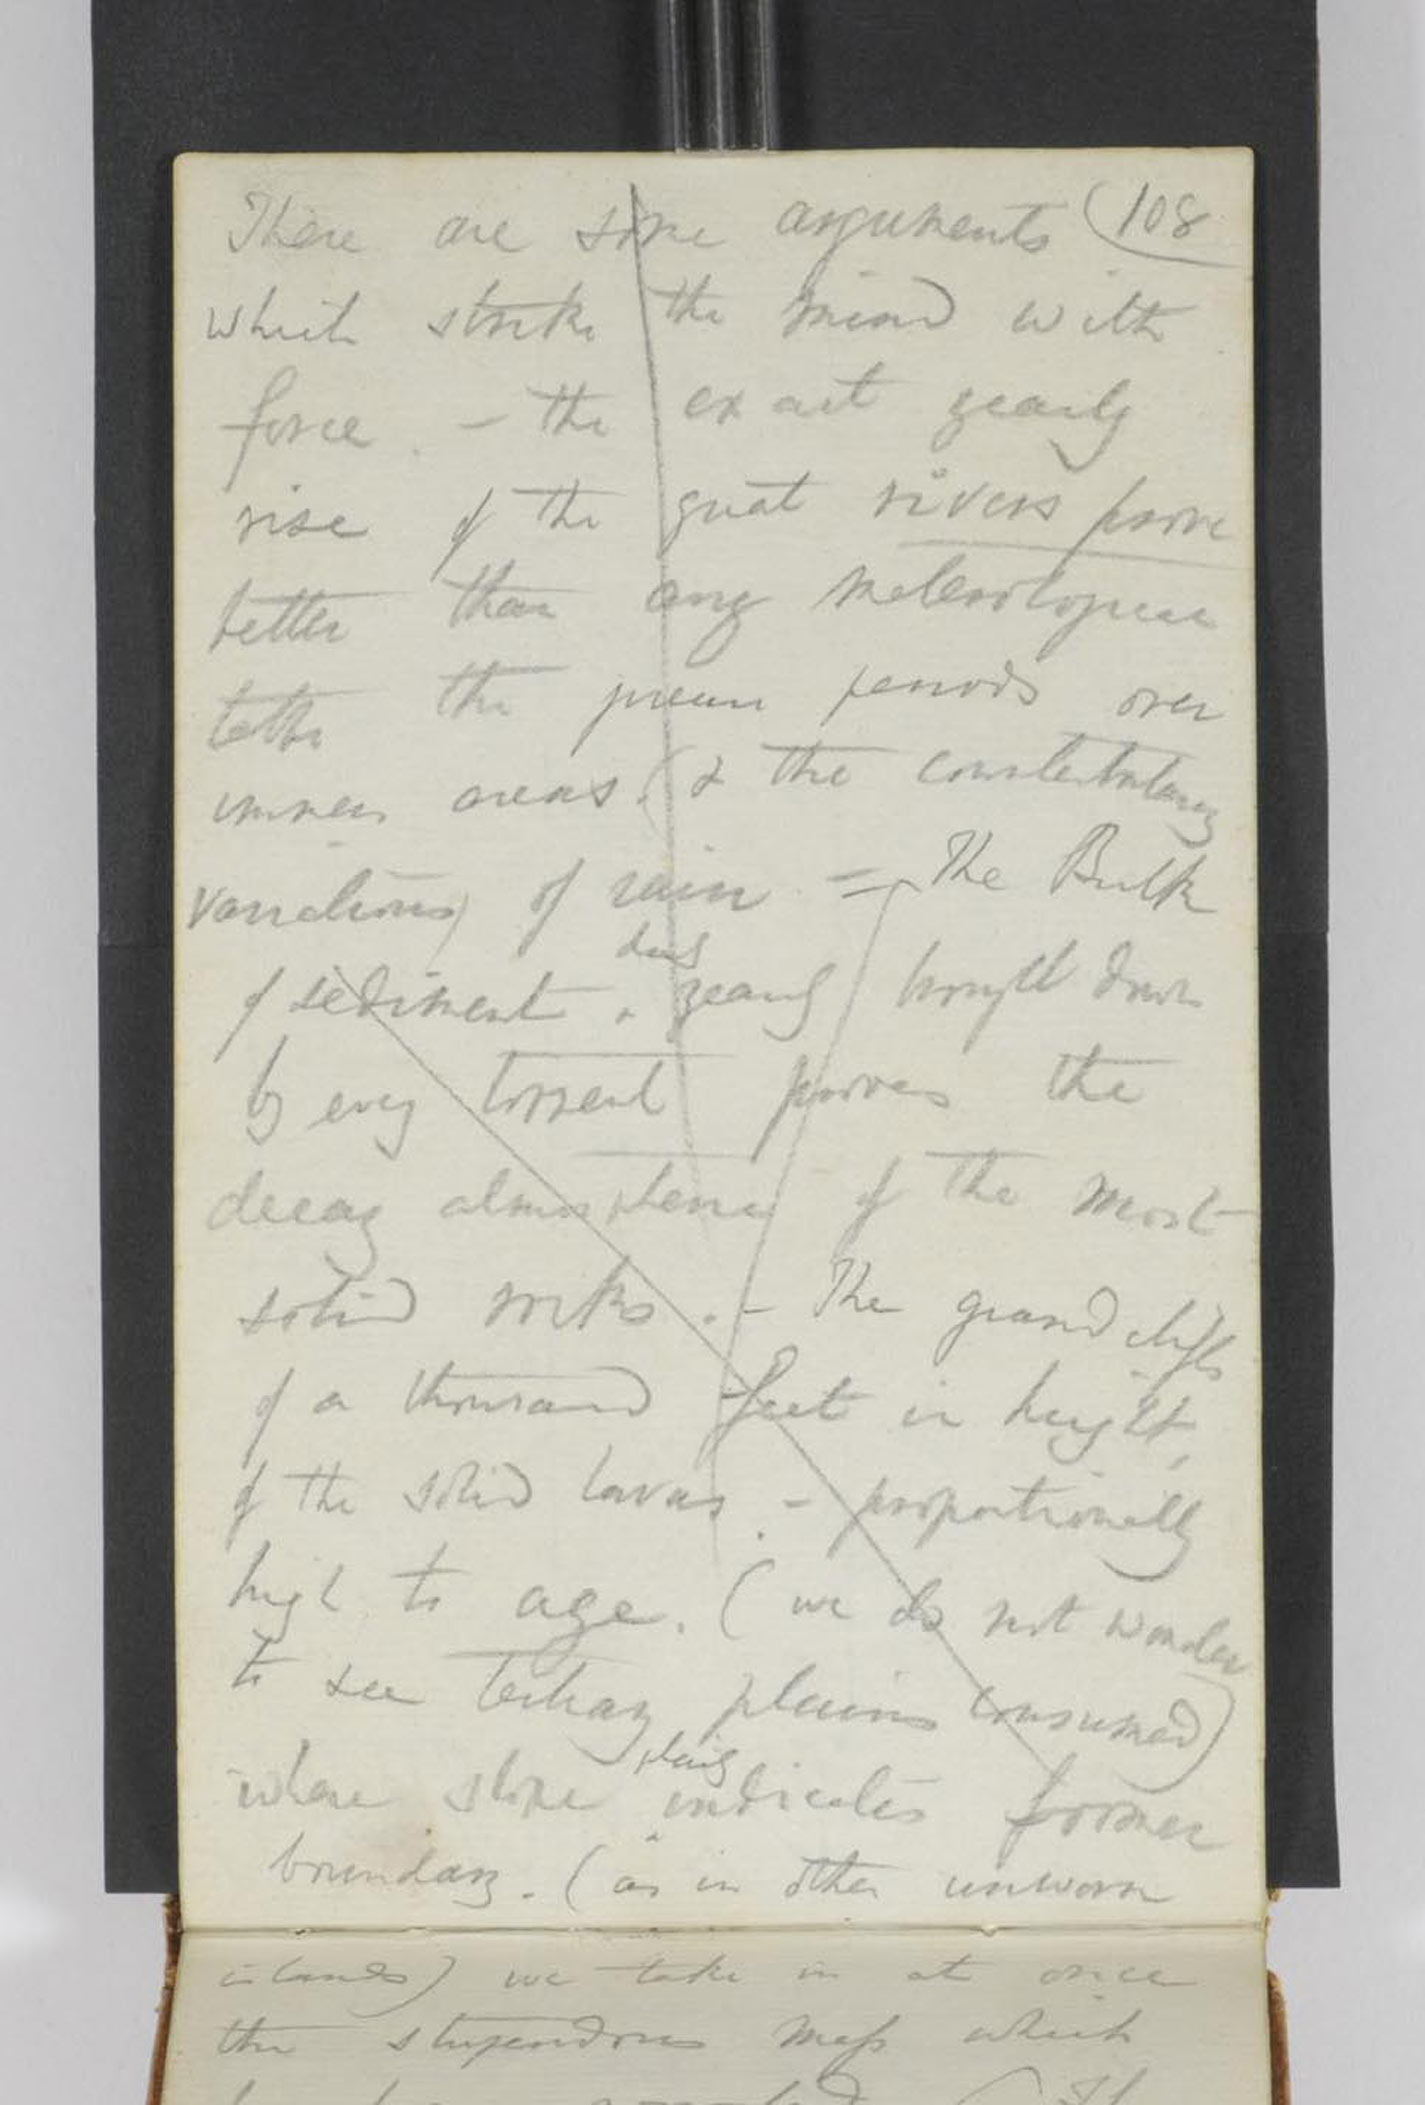 There are some arguments (108
which strike the mind with
force. – the exact yearly
rise of the great rivers prove
better than any meteorological
table the precise periods over
immense areas. (& the
variations) of rain = The Bulk
of sediment . daily yearly brought down
by every torrent proves the
decay atmospheric of the most
solid rocks. – The grand cliffs
of a thousand feet in height,
of the solid lavas. – proportionally
high to age. (we do not wonder
to see tertiary plains consumed)
where slope plainly indicates former
boundary. (as in other unworn
islands) we take in at once
the stupendous mass which